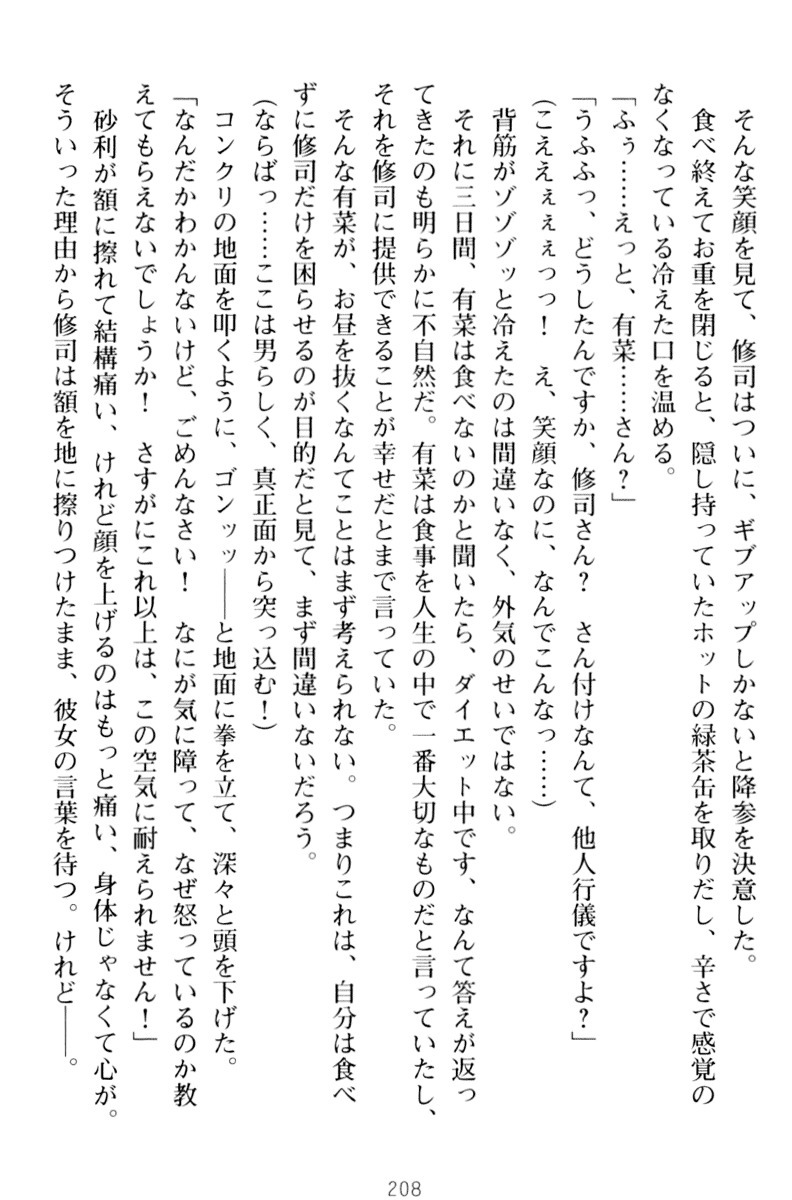 そんな笑顔を見て、修司はついに、ギブアップしかないと降参を決意した。
食べ終えてお重を閉じると、隠し持っていたホットの緑茶缶を取りだし、辛さで感覚の
なくなっている冷えた口を温める。
「ふぅ……えっと、有菜……さん？」
「うふふっ、どうしたんですか、修司さん？　さん付けなんて、他人行儀ですよ？」
（こえぇぇぇっっ！　え、笑顔なのに、なんでこんなっ……）
背筋がゾゾゾッと冷えたのは間違いなく、外気のせいではない。
それに三日間、有菜は食べないのかと聞いたら、ダイエット中です、なんて答えが返っ
てきたのも明らかに不自然だ。有菜は食事を人生の中で一番大切なものだと言っていたし、
それを修司に提供できることが幸せだとまで言っていた。
そんな有菜が、お昼を抜くなんてことはまず考えられない。つまりこれは、自分は食べ
ずに修司だけを困らせるのが目的だと見て、まず間違いないだろう。
（ならばっ……ここは男らしく、真正面から突っ込む！）
コンクリの地面を叩くように、ゴンッッ――と地面に拳を立て、深々と頭を下げた。
「なんだかわかんないけど、ごめんなさい！　なにが気に障って、なぜ怒っているのか教
えてもらえないでしょうか！　さすがにこれ以上は、この空気に耐えられません！」
砂利が額に擦れて結構痛い、けれど顔を上げるのはもっと痛い、身体じゃなくて心が。
そういった理由から修司は額を地に擦りつけたまま、彼女の言葉を待つ。けれど――。
208